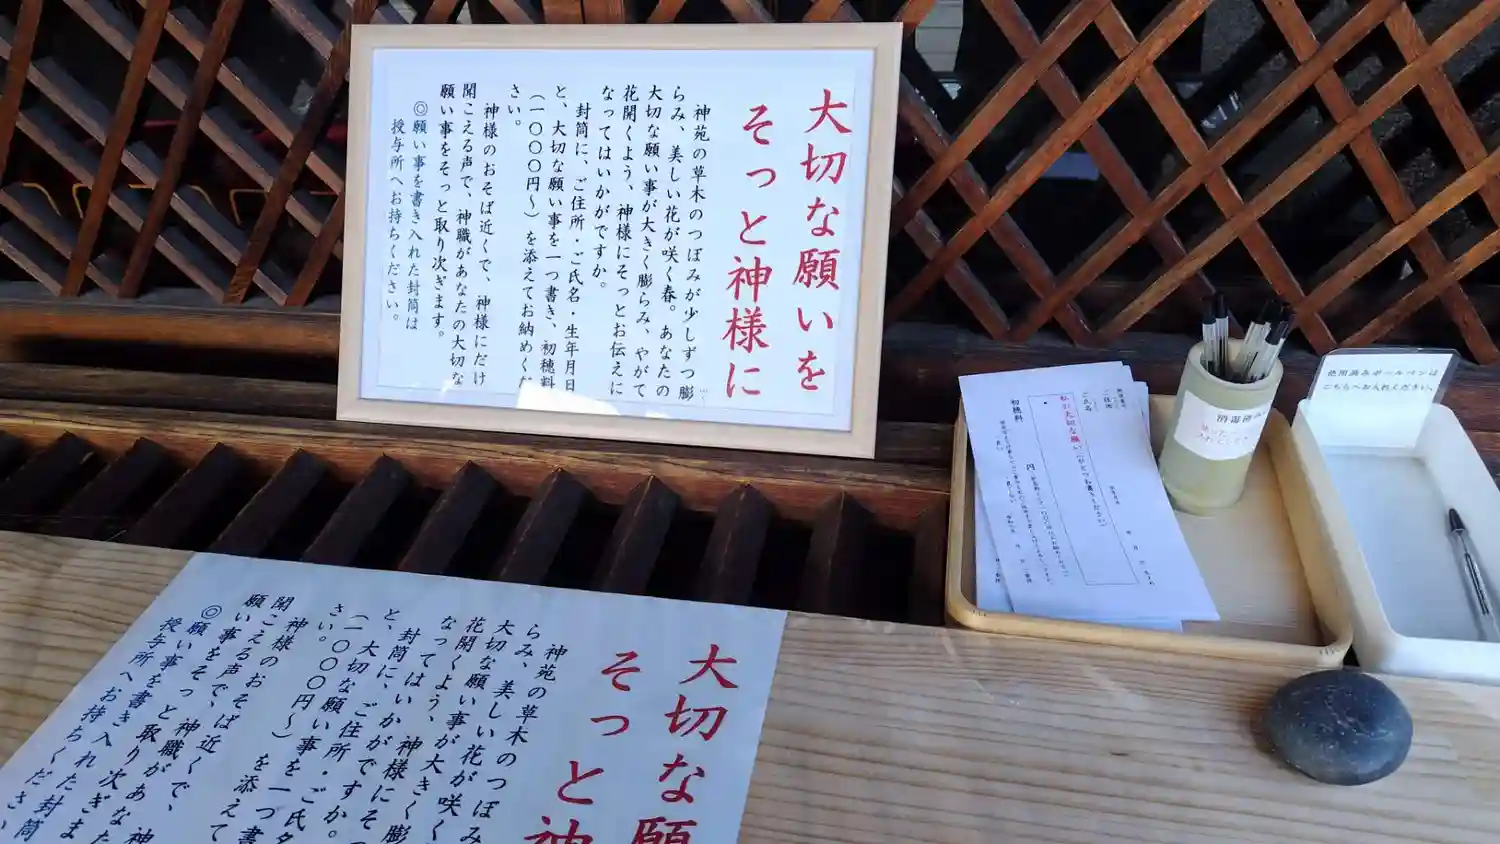 大切な願いを
そっと神様に
神苑の草木のつぼみが少しずつ膨
らみ、美しい花が咲く春。あなたの
大切な願い事が大きく膨らみ、やがて
花開くよう、神様にそっとお伝えに
なってはいかがですか。
封筒に、ご住所・ご氏名・生年月日
と、大切な願い事を一つ書き、初穂料
（一〇〇〇円〜）を添えてお納めくだ
さい。
神様のおそば近くで、神様にだけ
聞こえる声で、神職があなたの大切な
願い事をそっと取り次ぎます。
◎願い事を書き入れた封筒は
授与所へお持ちください。
使用済みボールペンは
こちらへお入れください。
消毒済み
ご住所
ご氏名
私の大切な願い（ひとつお書きください）
初穂料
円
大切な願
そっと神
神苑の草木のつぼみ
らみ、美しい花が咲く
大切な願い事が大きく膨
花開くよう、神様にそっ
なってはいかがですか。
封筒に、ご住所・ご氏名
と、大切な願い事を一つ書
（一〇〇〇円〜）を添えて
さい。
神様のおそば近くで、神
聞こえる声で、神職があなた
願い事をそっと取り次ぎま
◎願い事を書き入れた封筒
授与所へお持ちください